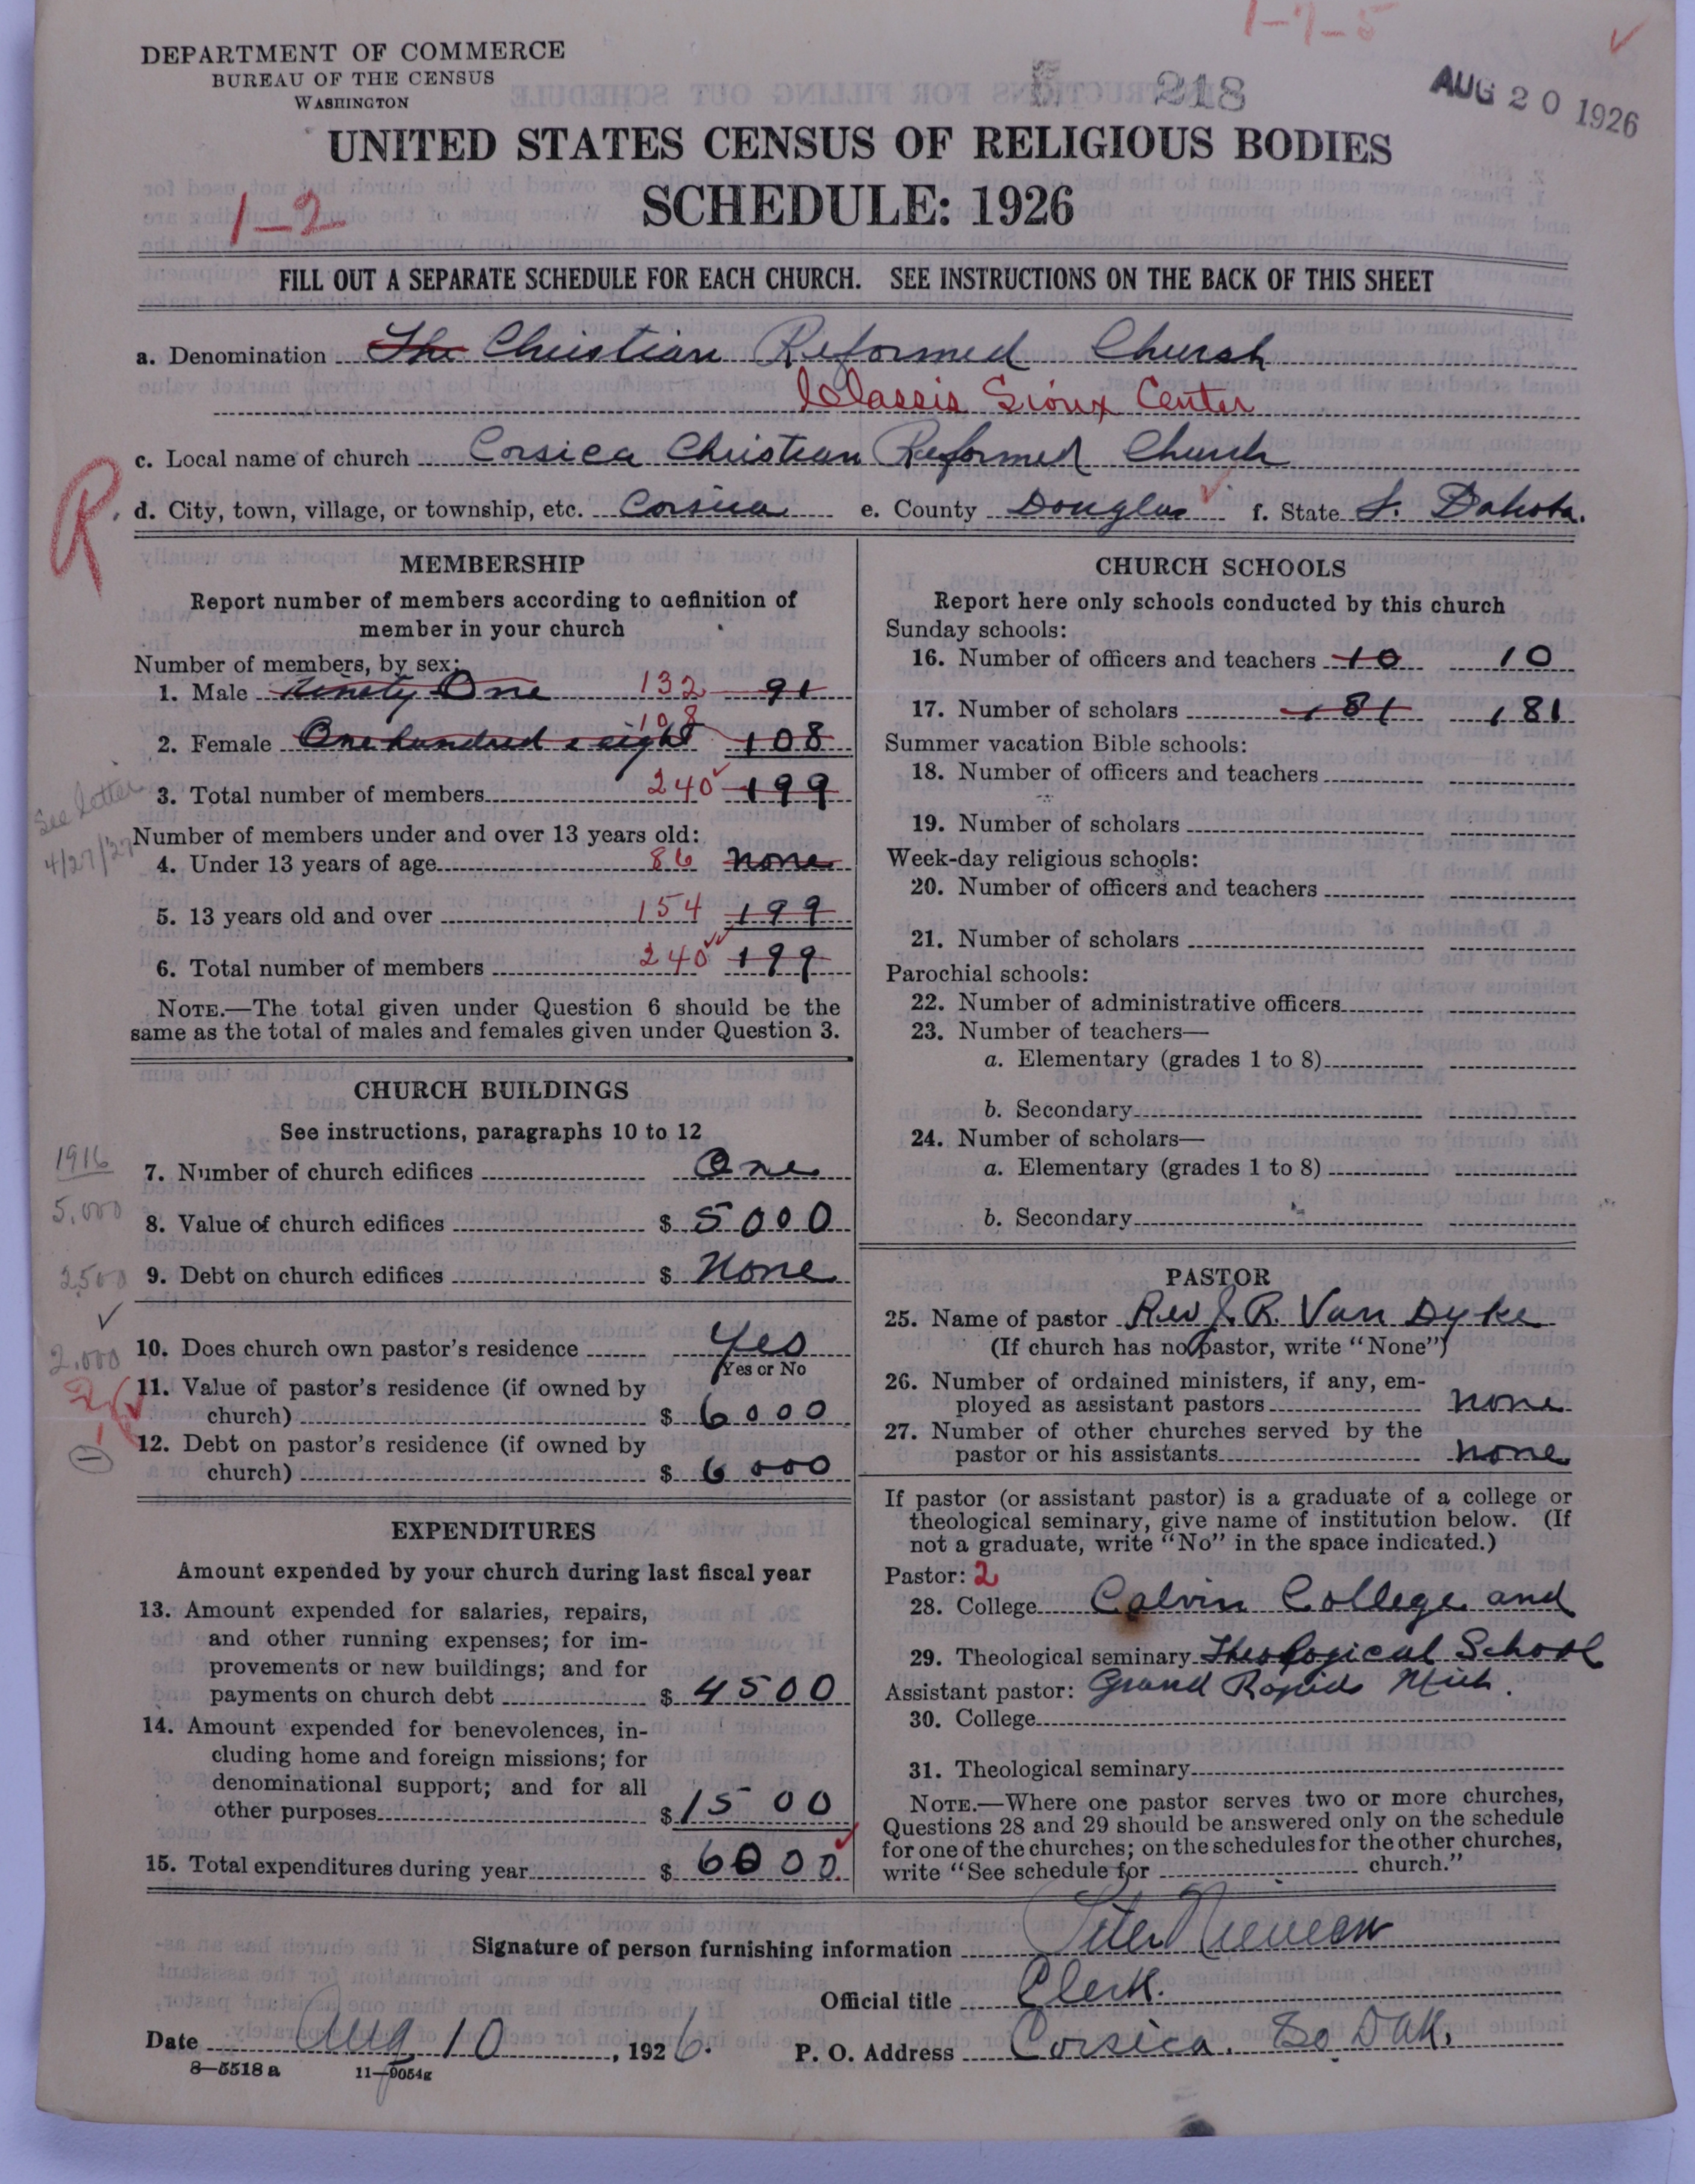 1-7-5
DEPARTMENT OF COMMERCE
BUREAU OF THE CENSUS
WASHINGTON
218
AUG 20 1926
UNITED STATES CENSUS OF RELIGIOUS BODIES
SCHEDULE: 1926
1-2
FILL OUT A SEPARATE SCHEDULE FOR EACH CHURCH. SEE INSTRUCTIONS ON THE BACK OF THIS SHEET
a. Denomination The Christian Reformed Church
Classis Sioux Center
c. Local name of church Corsica Christian Reformed Church
R
d. City, town, village, or township, etc. Corsica e. County Douglas f. State S. Dakota.
MEMBERSHIP
Report number of members according to definition of
member in your church
Number of members, by sex:
1. Male Ninety One 132 91
2. Female One hundred & eight 108 108
3. Total number of members 240 199
See letter
4/27/27
Number of members under and over 13 years old:
4. Under 13 years of age 86 None
5. 13 years old and over 154 199
6. Total number of members 240 199
NOTE.—The total given under Question 6 should be the
same as the total of males and females given under Question 3.
CHURCH BUILDINGS
See instructions, paragraphs 10 to 12
1916
7. Number of church edifices One
5,000
8. Value of church edifices $ 5000
2500
9. Debt on church edifices $ None
10. Does church own pastor's residence Yes
Yes or No
2,000
11. Value of pastor's residence (if owned by
church) $ 6000
12. Debt on pastor's residence (if owned by
church) $ 6000
EXPENDITURES
Amount expended by your church during last fiscal year
13. Amount expended for salaries, repairs,
and other running expenses; for im-
provements or new buildings; and for
payments on church debt $ 4500
14. Amount expended for benevolences, in-
cluding home and foreign missions; for
denominational support; and for all
other purposes $ 1500
15. Total expenditures during year $ 6000
CHURCH SCHOOLS
Report here only schools conducted by this church
Sunday schools:
16. Number of officers and teachers 10 10
17. Number of scholars 181 181
Summer vacation Bible schools:
18. Number of officers and teachers
19. Number of scholars
Week-day religious schools:
20. Number of officers and teachers
21. Number of scholars
Parochial schools:
22. Number of administrative officers
23. Number of teachers—
a. Elementary (grades 1 to 8)
b. Secondary
24. Number of scholars—
a. Elementary (grades 1 to 8)
b. Secondary
PASTOR
25. Name of pastor Rev J. R. Van Dyke
(If church has no pastor, write "None")
26. Number of ordained ministers, if any, em-
ployed as assistant pastors none
27. Number of other churches served by the
pastor or his assistants none
If pastor (or assistant pastor) is a graduate of a college or
theological seminary, give name of institution below. (If
not a graduate, write "No" in the space indicated.)
Pastor: 2
28. College Calvin College and
29. Theological seminary Theological School
Assistant pastor: Grand Rapids Mich.
30. College
31. Theological seminary
NOTE.—Where one pastor serves two or more churches,
Questions 28 and 29 should be answered only on the schedule
for one of the churches; on the schedules for the other churches,
write "See schedule for church."
Signature of person furnishing information Peter
Official title Clerk.
Date Aug 10, 1926. P. O. Address Corsica, So Dak.
8-5518 a 11-9054g